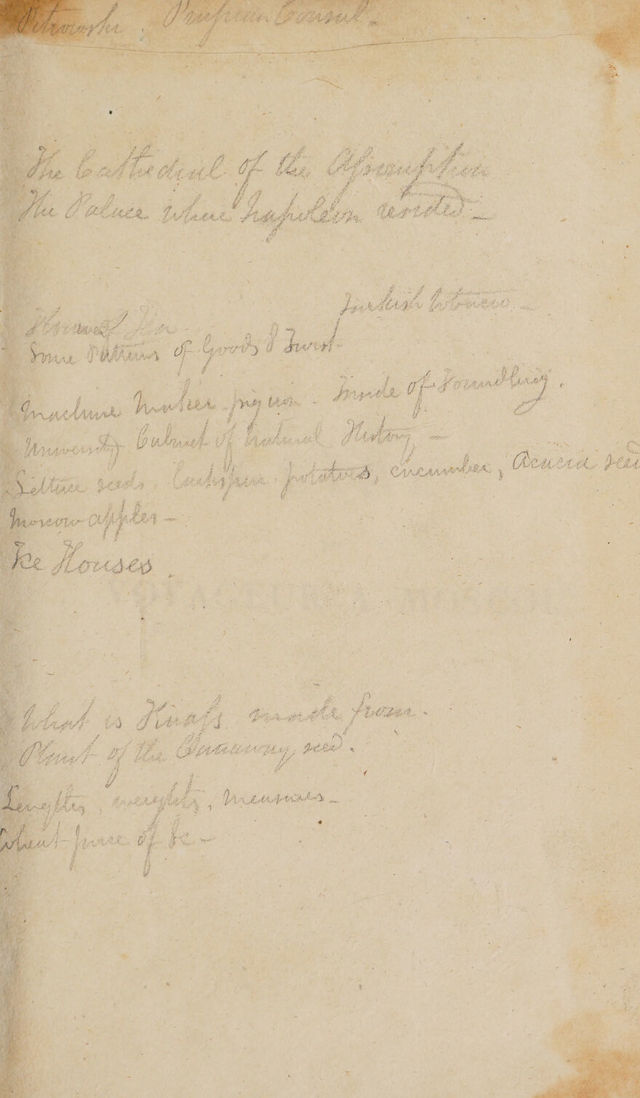 Petrowski, Prussian Consul -
The Cathedral of the Assumption
The Palace where Napoleon resided -
Turkish tobacco -
House of
Some Patterns of Goods &
Machine Maker pig iron. Inside of Foundling.
University Cabinet of Natural History -
Lettuce seeds, Larkspur, potatoes, cucumber, Acacia seed
Moscow apples -
Ice Houses.
VOYAGEURS A MOSCOU
What is Kvass made from.
Plant of the Caraway seed.
Lengths, weights, measures -
Wheat price of &c -